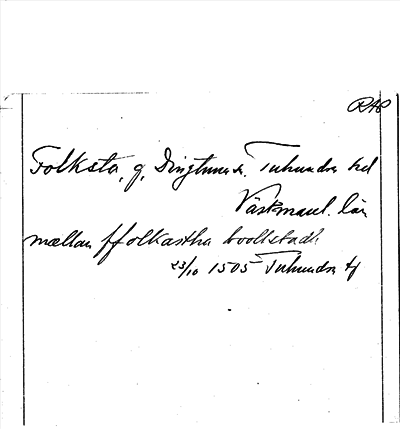 RAP
Folksta, g, Dingtuna s. Tuhundra hd
Västmanl. län
mællan ffolkastha boolstadh
23/10 1505 Tuhundra tf